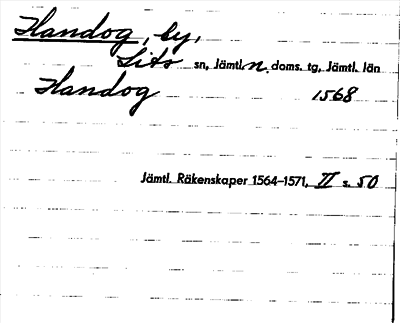 Handog, by,
Lits sn, Jämtl. n. doms. tg, Jämtl. län
Handog 1568
Jämtl. Räkenskaper 1564–1571, II s. 50